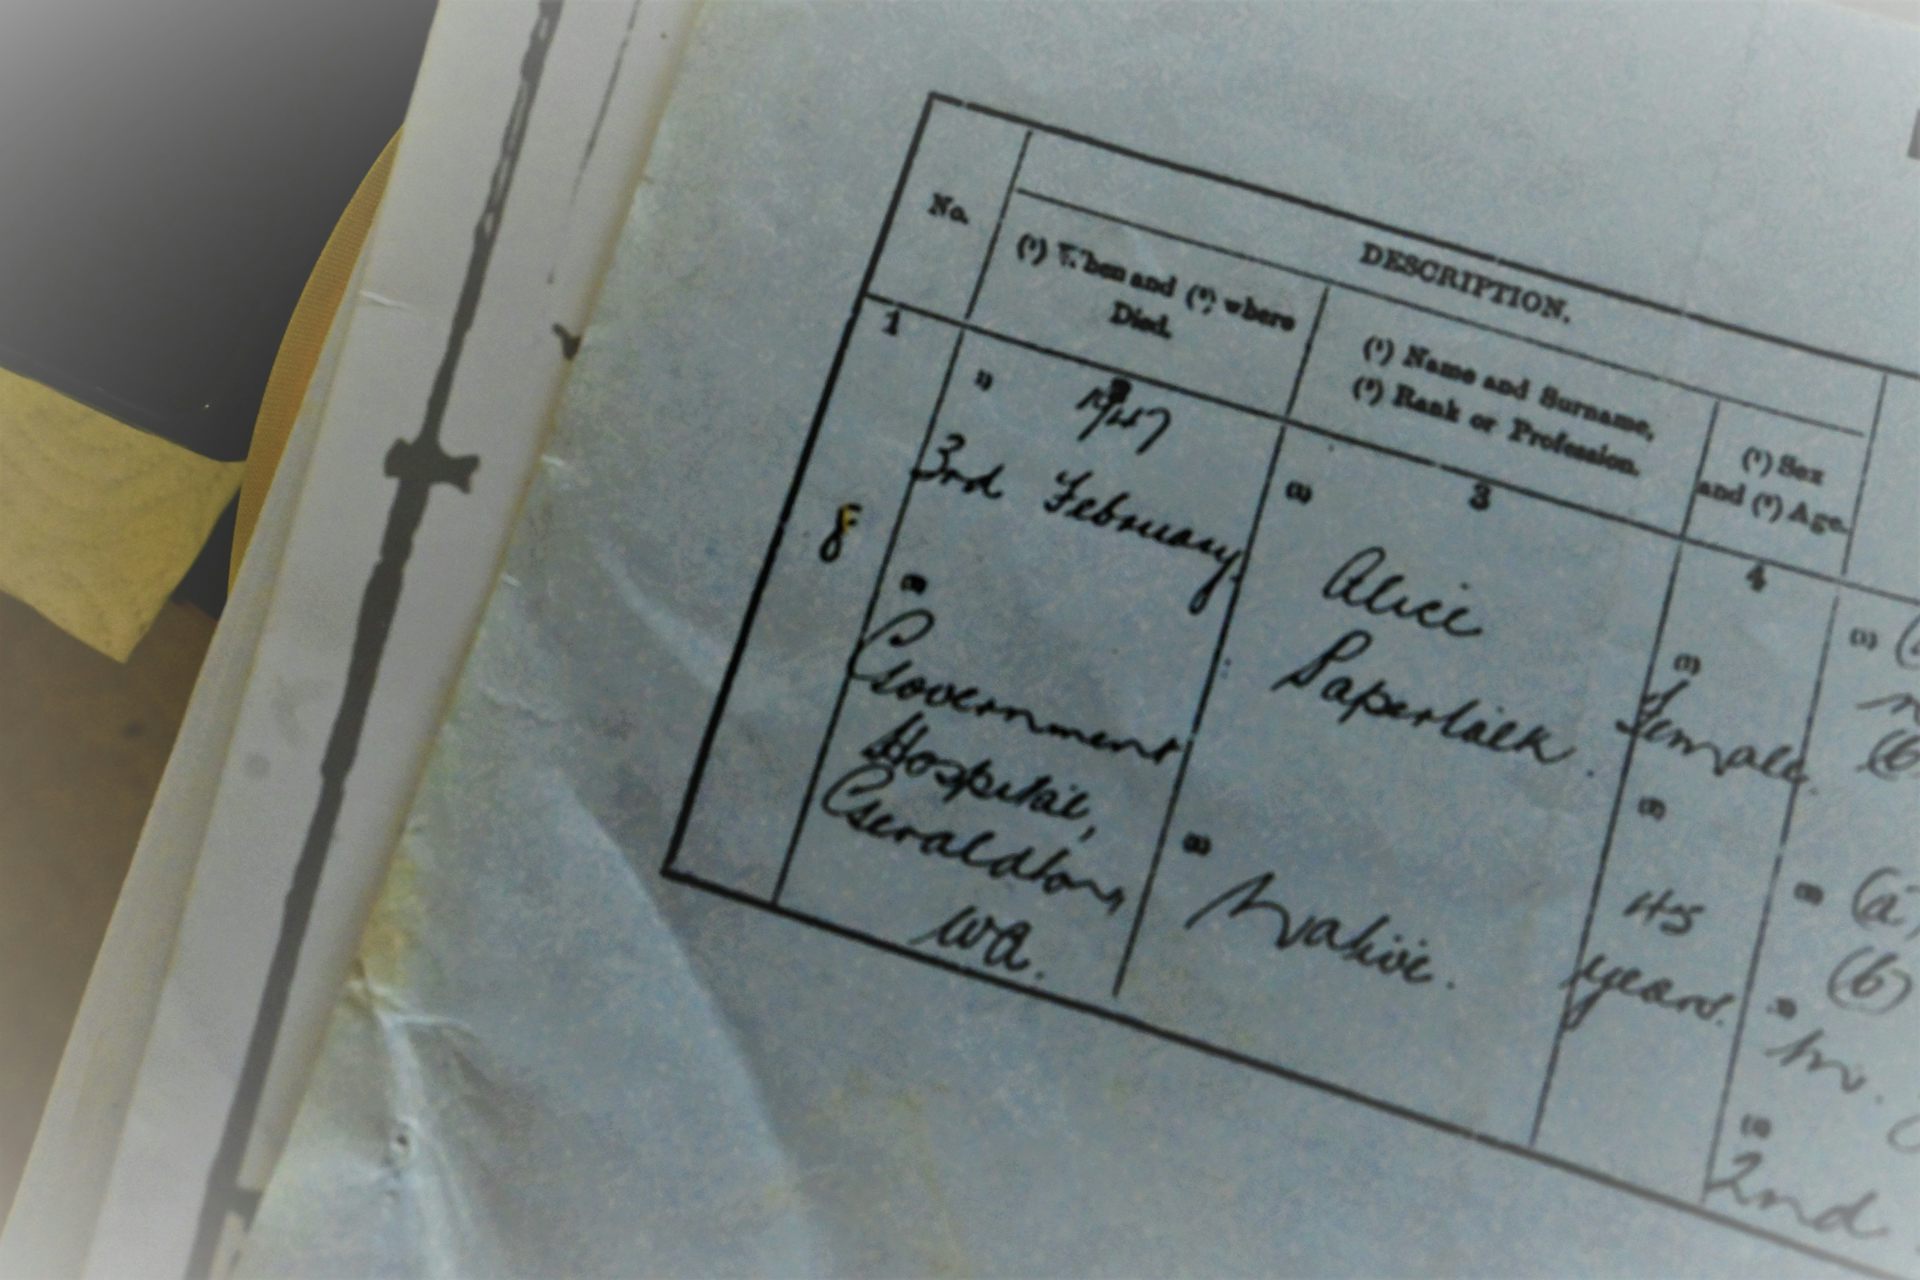 DESCRIPTION.
No.
(¹) When and (²) where
Died.
(¹) Name and Surname,
(²) Rank or Profession.
(¹) Sex
and (²) Age.
1
3
4
8
(1)
1947
3rd February,
(2)
Government
Hospital,
Geraldton,
WA.
(1)
Alice
Paperlack.
(2)
Native.
(1)
Female.
(2)
45
years.
(1)
(b)
(2) (a)
(b)
(3)
(4)
2nd